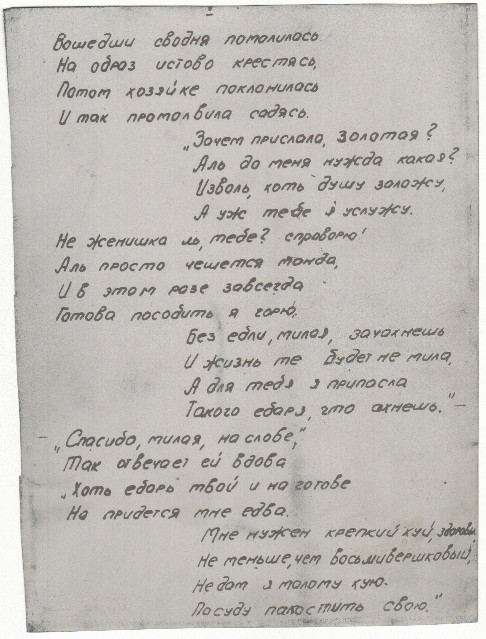 Вошедши сводня помолилась
На образ истово крестясь,
Потом хозяйке поклонилась
И так промолвила садясь.
„Зачем прислала, золотая?
Аль до меня нужда какая?
Изволь, хоть душу заложу,
А уж тебе я услужу.
Не женишка ль, тебе? спроворю!
Аль просто чешется манда,
И в этом разе завсегда
Готова пособить я горю.
Без ебли, милая, зачахнешь
И жизнь те будет не мила,
А для тебя я припасла
Такого ебаря, что ахнешь."—
— „Спасибо, милая, на слове,"
Так отвечает ей вдова
„Хоть ебарь твой и на готове
На придется мне едва.
Мне нужен крепкий хуй, здоровый,
Не меньше, чем восьмивершковый,
Не дам я малому хую.
Посуду пакостить свою."